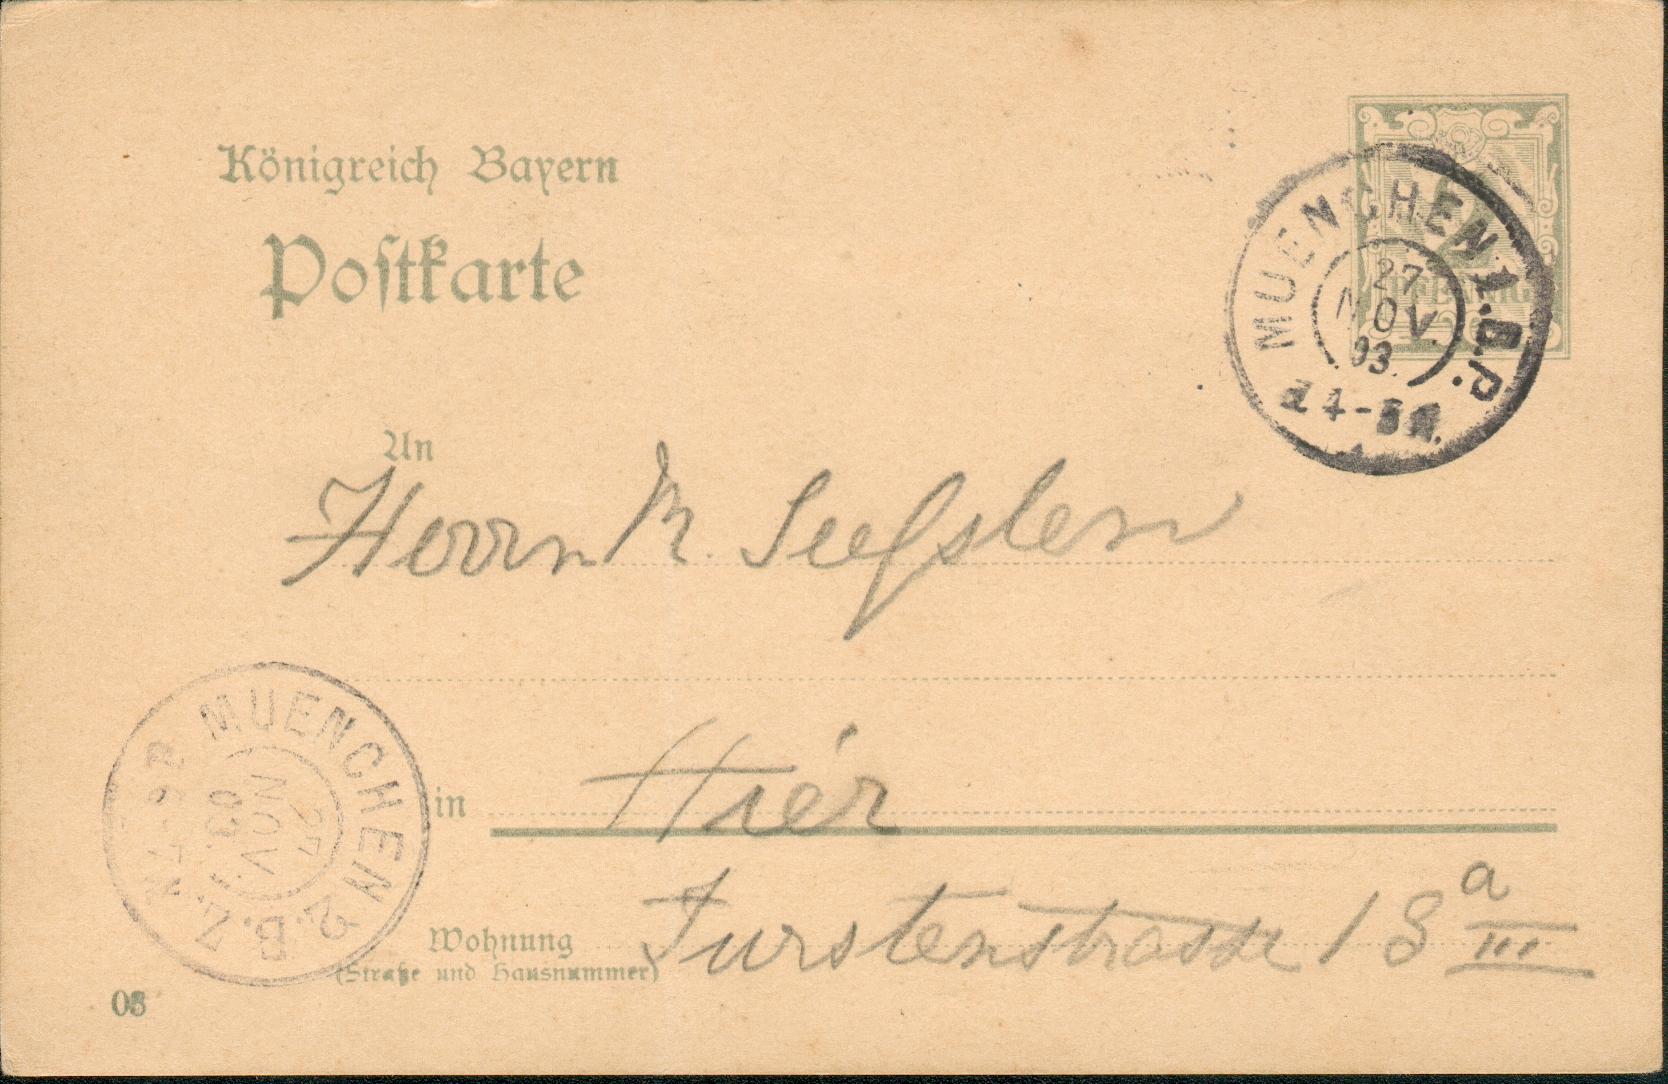 Königreich Bayern
Postkarte
PFENNIG
MUENCHEN 1. B.P.
27
NOV.
03.
4-5 N.
An
Herrn M.
in Hier
Wohnung Furstenstrasse 18 a III
(Straße und Hausnummer)
MUENCHEN 2. B.Z.
27
NOV.
03.
03